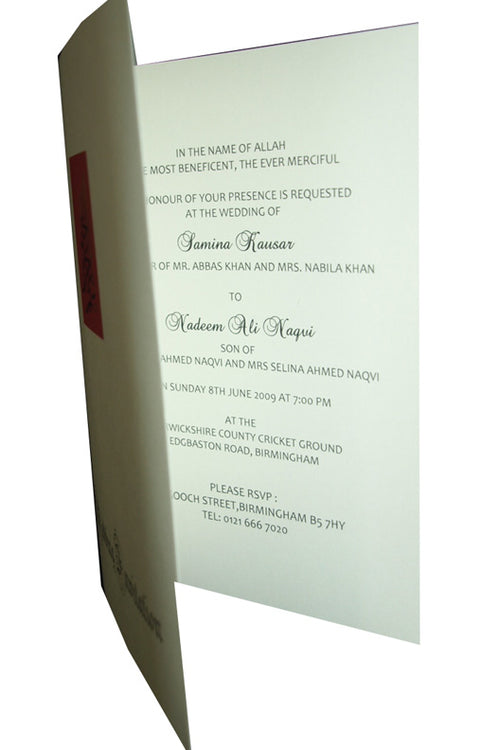 IN THE NAME OF ALLAH
MOST BENEFICENT, THE EVER MERCIFUL
OF YOUR PRESENCE IS REQUESTED
AT THE WEDDING OF
Samina Kausar
OF MR. ABBAS KHAN AND MRS. NABILA KHAN
TO
Nadeem Ali Naqvi
SON OF
AHMED NAQVI AND MRS SELINA AHMED NAQVI
SUNDAY 8TH JUNE 2009 AT 7:00 PM
AT THE
COUNTY CRICKET GROUND
EDGBASTON ROAD, BIRMINGHAM
PLEASE RSVP :
STREET,BIRMINGHAM B5 7HY
TEL: 0121 666 7020